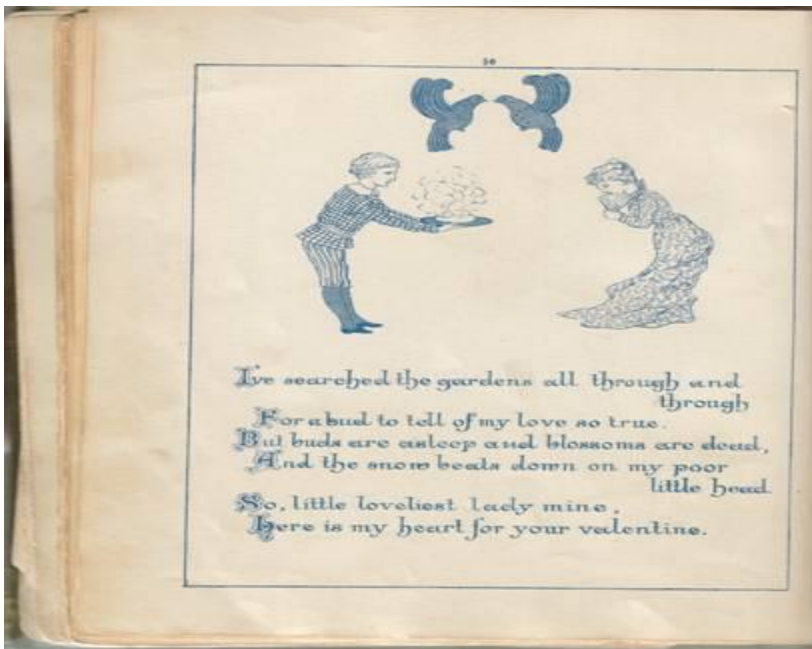 16
I've searched the gardens all through and
through
For a bud to tell of my love so true.
But buds are asleep and blossoms are dead,
And the snow beats down on my poor
little head.
So, little loveliest lady mine,
Here is my heart for your valentine.